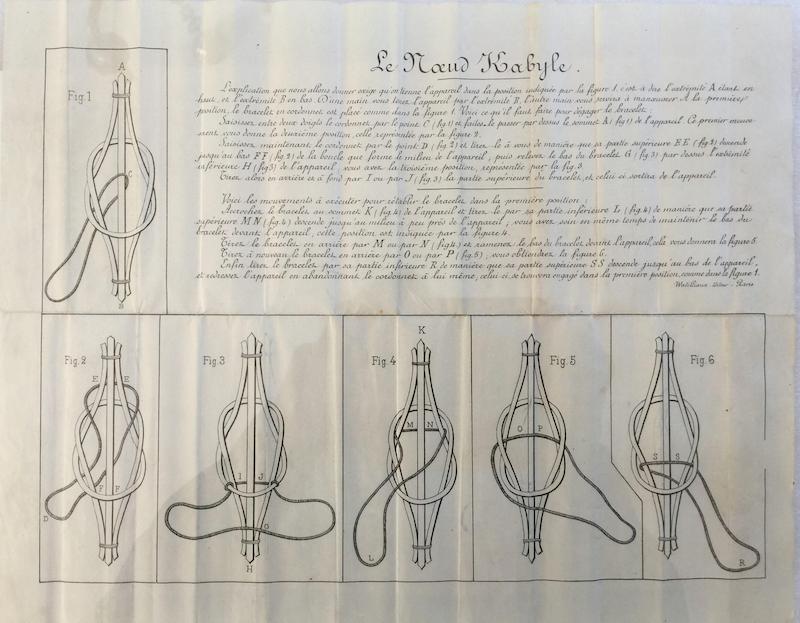 Le Nœud Kabyle.
L'explication que nous allons donner exige qu'on tienne l'appareil dans la position indiquée par la figure 1. c'est à dire l'extrémité A étant en
haut, et l'extrémité B en bas. D'une main vous tenez l'appareil par l'extrémité B, l'autre main vous servira à manœuvrer. A la première
position, le bracelet en cordonnet est placé comme dans la figure 1. Voici ce qu'il faut faire pour dégager le bracelet.
Saisissez entre deux doigts le cordonnet, par le point C (fig 1) et faites-le passer par dessus le sommet A (fig 1) de l'appareil. Ce premier mouve-
ment, vous donne la deuxième position, celle représentée par la figure 2.
Saisissez, maintenant le cordonnet par le point D (fig 2) et tirez-le à vous de manière que sa partie supérieure EE (fig 2) descende
jusqu'au bas FF (fig 2) de la boucle que forme le milieu de l'appareil, puis relevez le bas du bracelet G (fig 3) par dessous l'extrémité
inférieure H (fig 3) de l'appareil, vous avez la troisième position, représentée par la fig. 3.
Tirez alors en arrière et à fond par I ou par J (fig. 3) la partie supérieure du bracelet, et celui-ci sortira de l'appareil.
Voici les mouvements à exécuter pour rétablir le bracelet dans la première position :
Accrochez le bracelet au sommet K (fig. 4) de l'appareil et tirez le par sa partie inférieure L (fig 4) de manière que sa partie
supérieure MN (fig 4) descende jusqu'au milieu à peu près de l'appareil, vous avez soin en même temps de maintenir le bas du
bracelet devant l'appareil, cette position est indiquée par la figure 4.
Tirez le bracelet en arrière par M ou par N (fig 4) et ramenez le bas de bracelet devant l'appareil, cela vous donnera la figure 5.
Tirez à nouveau le bracelet en arrière par O ou par P (fig. 5); vous obtiendrez la figure 6.
Enfin tirez le bracelet par sa partie inférieure R de manière que sa partie supérieure SS descende jusqu'au bas de l'appareil,
et redressez l'appareil en abandonnant le cordonnet à lui même, celui-ci se trouvera engagé dans la première position, comme dans la figure 1.
Paris
Fig. 1
A
C
B
Fig. 2
E E
F F
D
Fig. 3
I J
G
H
Fig. 4
K
M N
L
Fig. 5
O P
Fig. 6
S S
R